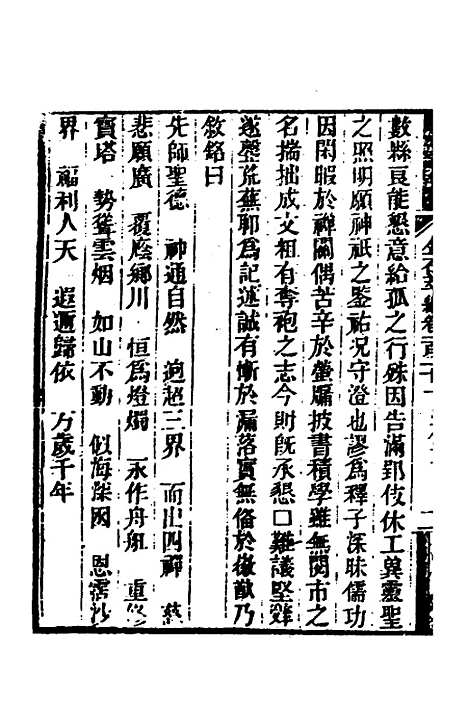 數縣豈能懇意給孤之行殊因告滿郢伎休工冀靈聖
之照明願神祇之鑒祐況守澄也謬為釋子深昧儒功
因閑暇於禪關偶苦辛於螢牖披書積學雖無閱市之
名揣拙成文粗有奪袍之志今則旣承懇口難議堅辭
遂罄荒蕪聊為記述誠有慚於漏落實無俻於徽猷乃
敘銘曰
先師聖德 神通自然 逈超三界 而出四禪 慈
悲願廣 覆廕鄉川 恒為燈燭 永作舟舡 重修
寶塔 勢聳雲烟 如山不動 似海深困 恩霑沙
界 福利人天 遐邇歸依 万歲千年